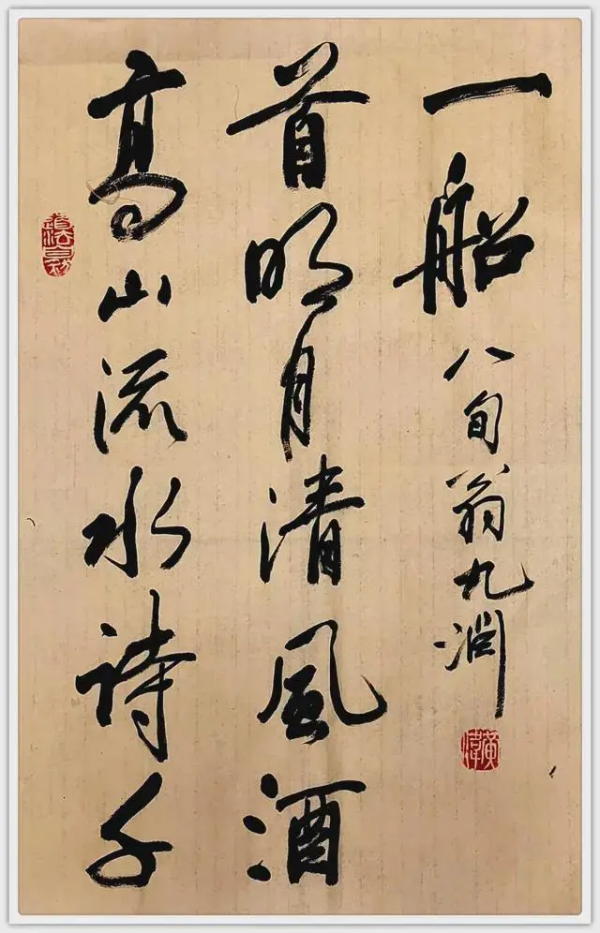 高山流水诗千
首明月清風酒
一船
八旬翁九渊